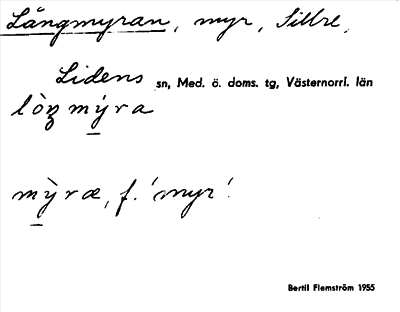 Långmyran, myr, Sillre,
Lidens sn, Med. ö. doms. tg, Västernorrl. län
lòŋmy̠ra
mỳ̠ræ, f. 'myr'.
Bertil Flemström 1955